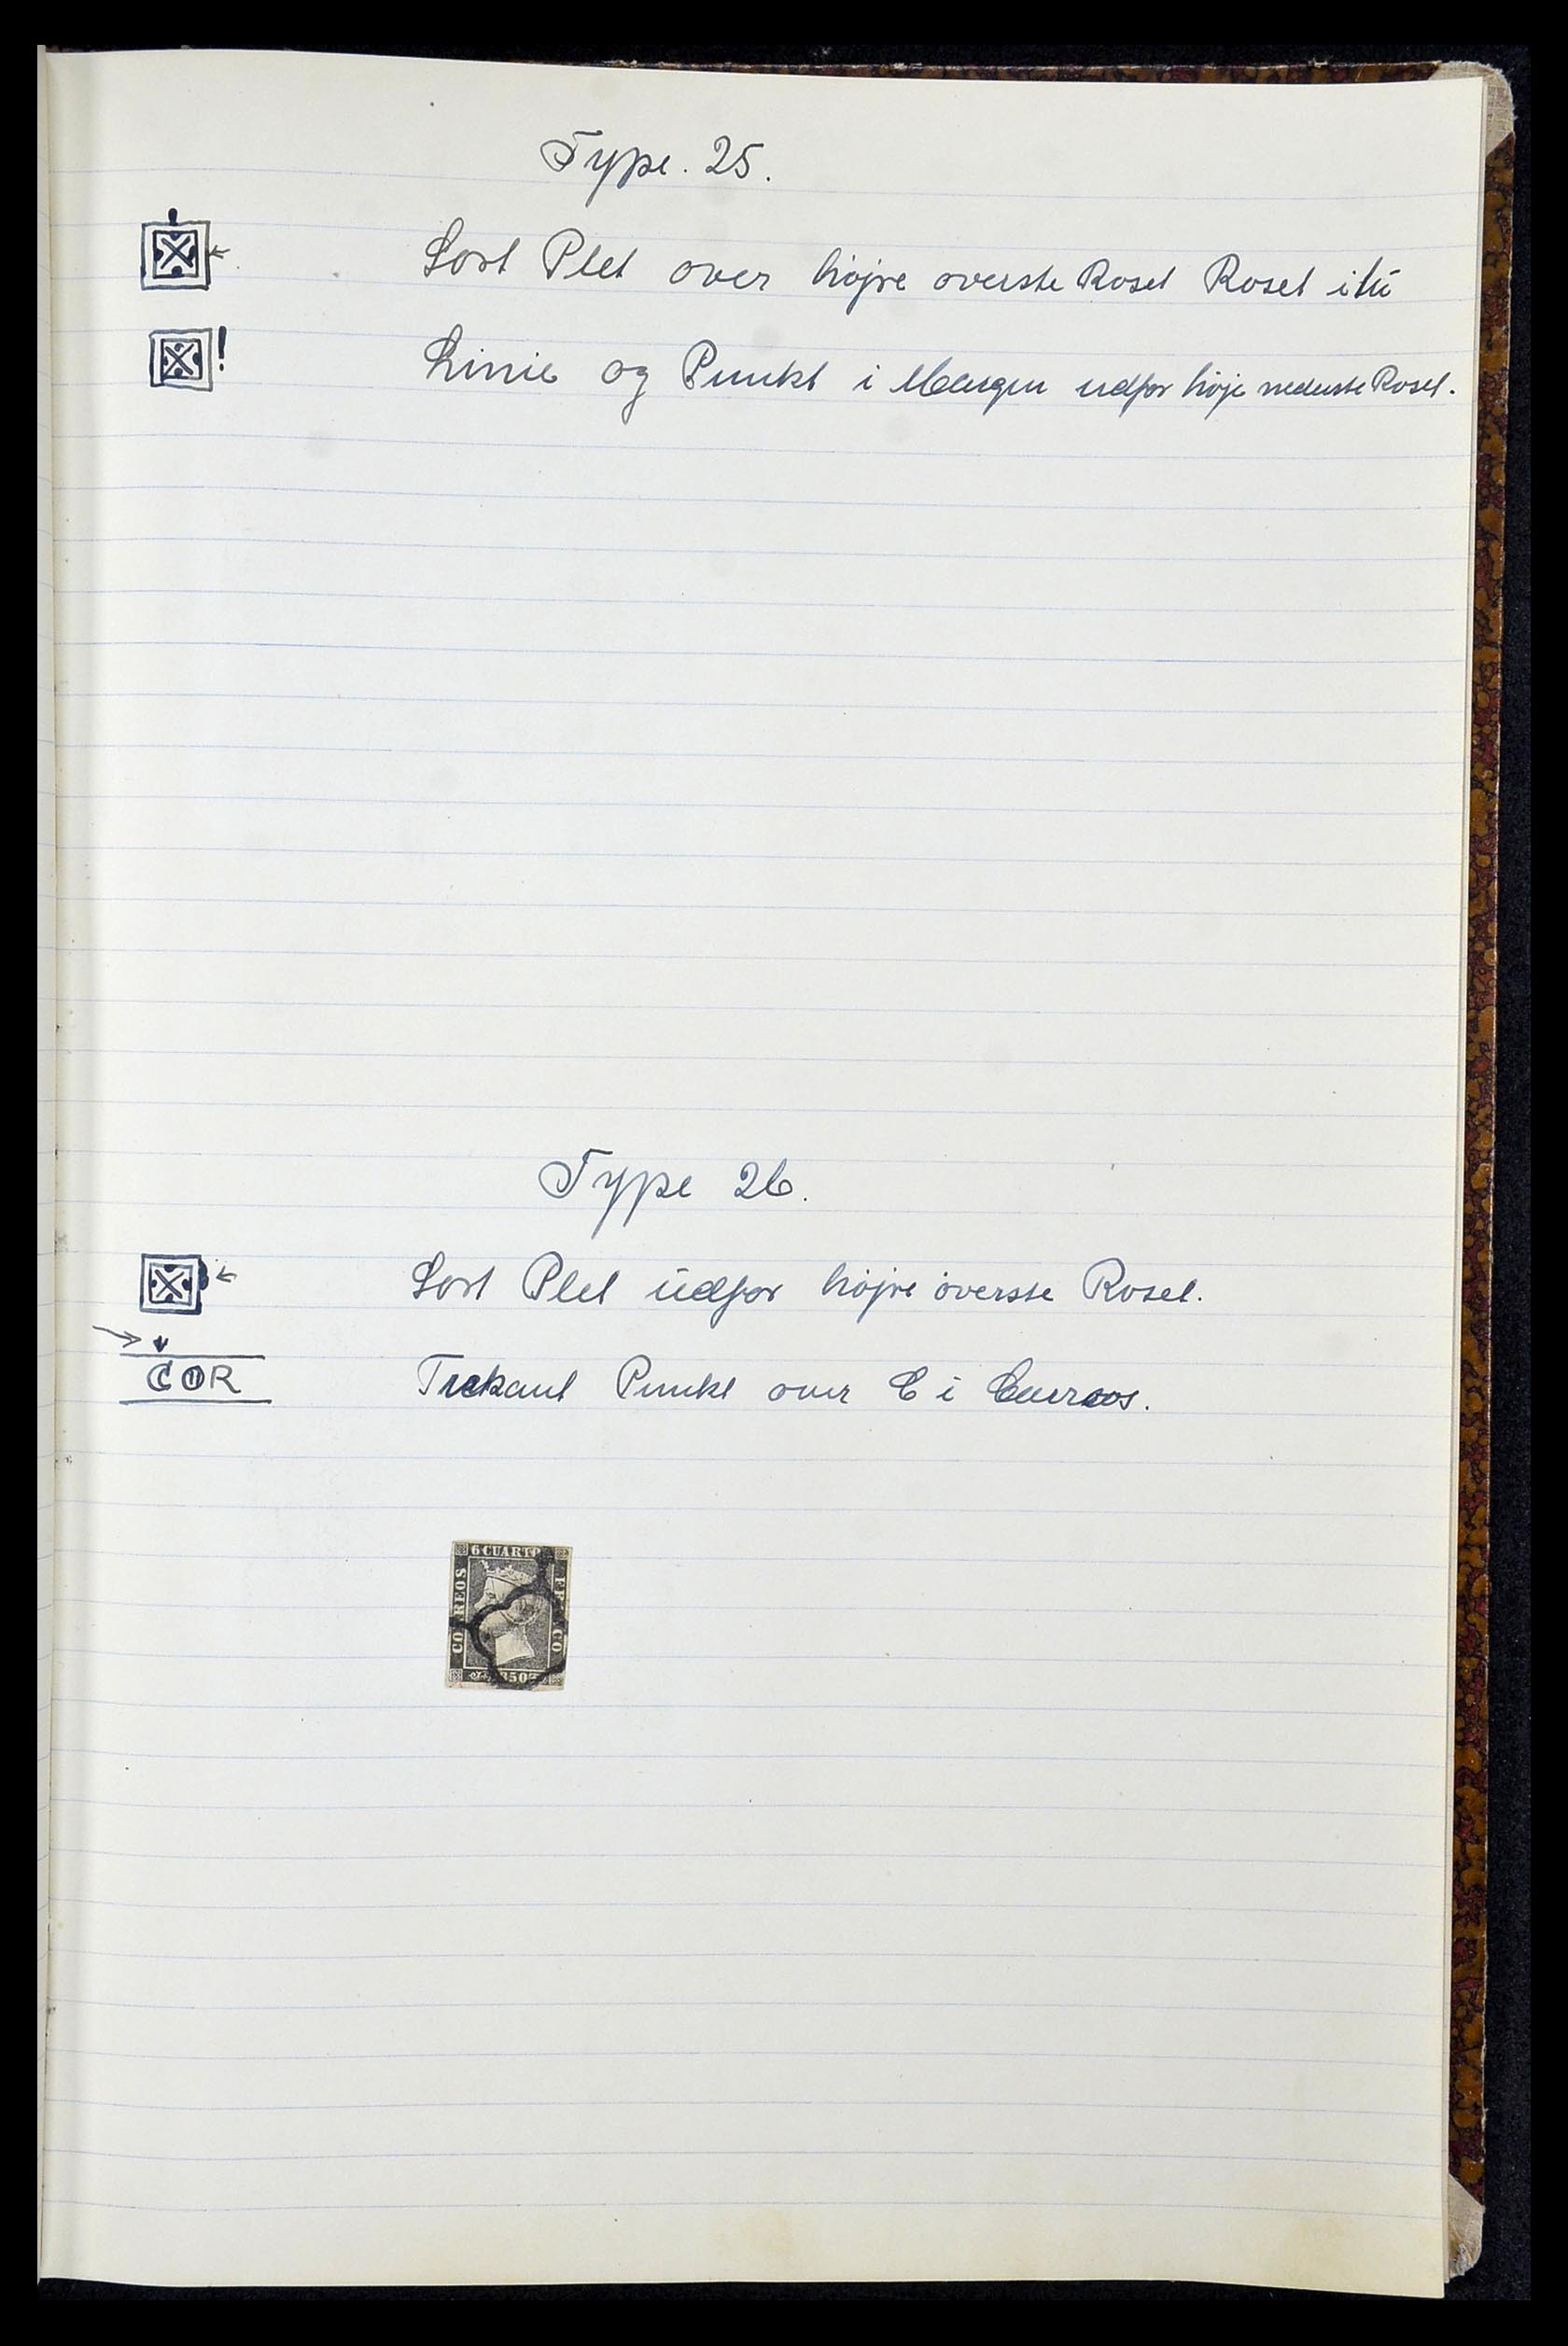 Type. 25.
Sort Plet over højre øverste Roset Roset itü
!
Linie og Punkt i Margin udfor høje nederste Roset.
Type 26.
Sort Plet üdfor højre øverste Roset.
COR
Trekant Punkt over C i
6 CUARTO
CORREOS
FR CO
850